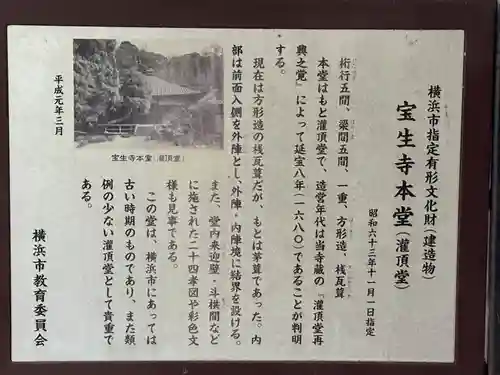 横浜市指定有形文化財（建造物）
宝生寺本堂（灌頂堂）
昭和六十三年十一月一日指定
桁行五間、梁間五間、一重、方形造、桟瓦葺
本堂はもと灌頂堂で、造営年代は当寺蔵の『灌頂堂再
興之覚』によって延宝八年（一六八〇）であることが判明
する。
現在は方形造の桟瓦葺だが、もとは茅葺であった。内
部は前面入側を外陣とし、外陣・内陣境に結界を設ける。
また、堂内来迎壁・斗栱間など
に施された二十四孝図や彩色文
様も見事である。
この堂は、横浜市にあっては
古い時期のものであり、また類
例の少ない灌頂堂として貴重で
ある。
宝生寺本堂（灌頂堂）
平成元年三月
横浜市教育委員会